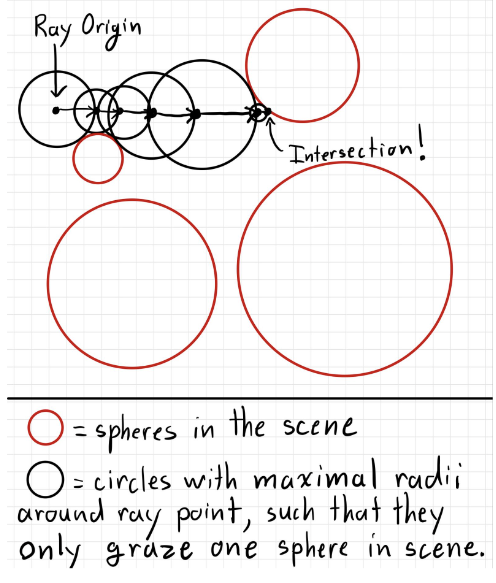 Ray Origin
Intersection!
= spheres in the scene
= circles with maximal radii
around ray point, such that they
only graze one sphere in scene.